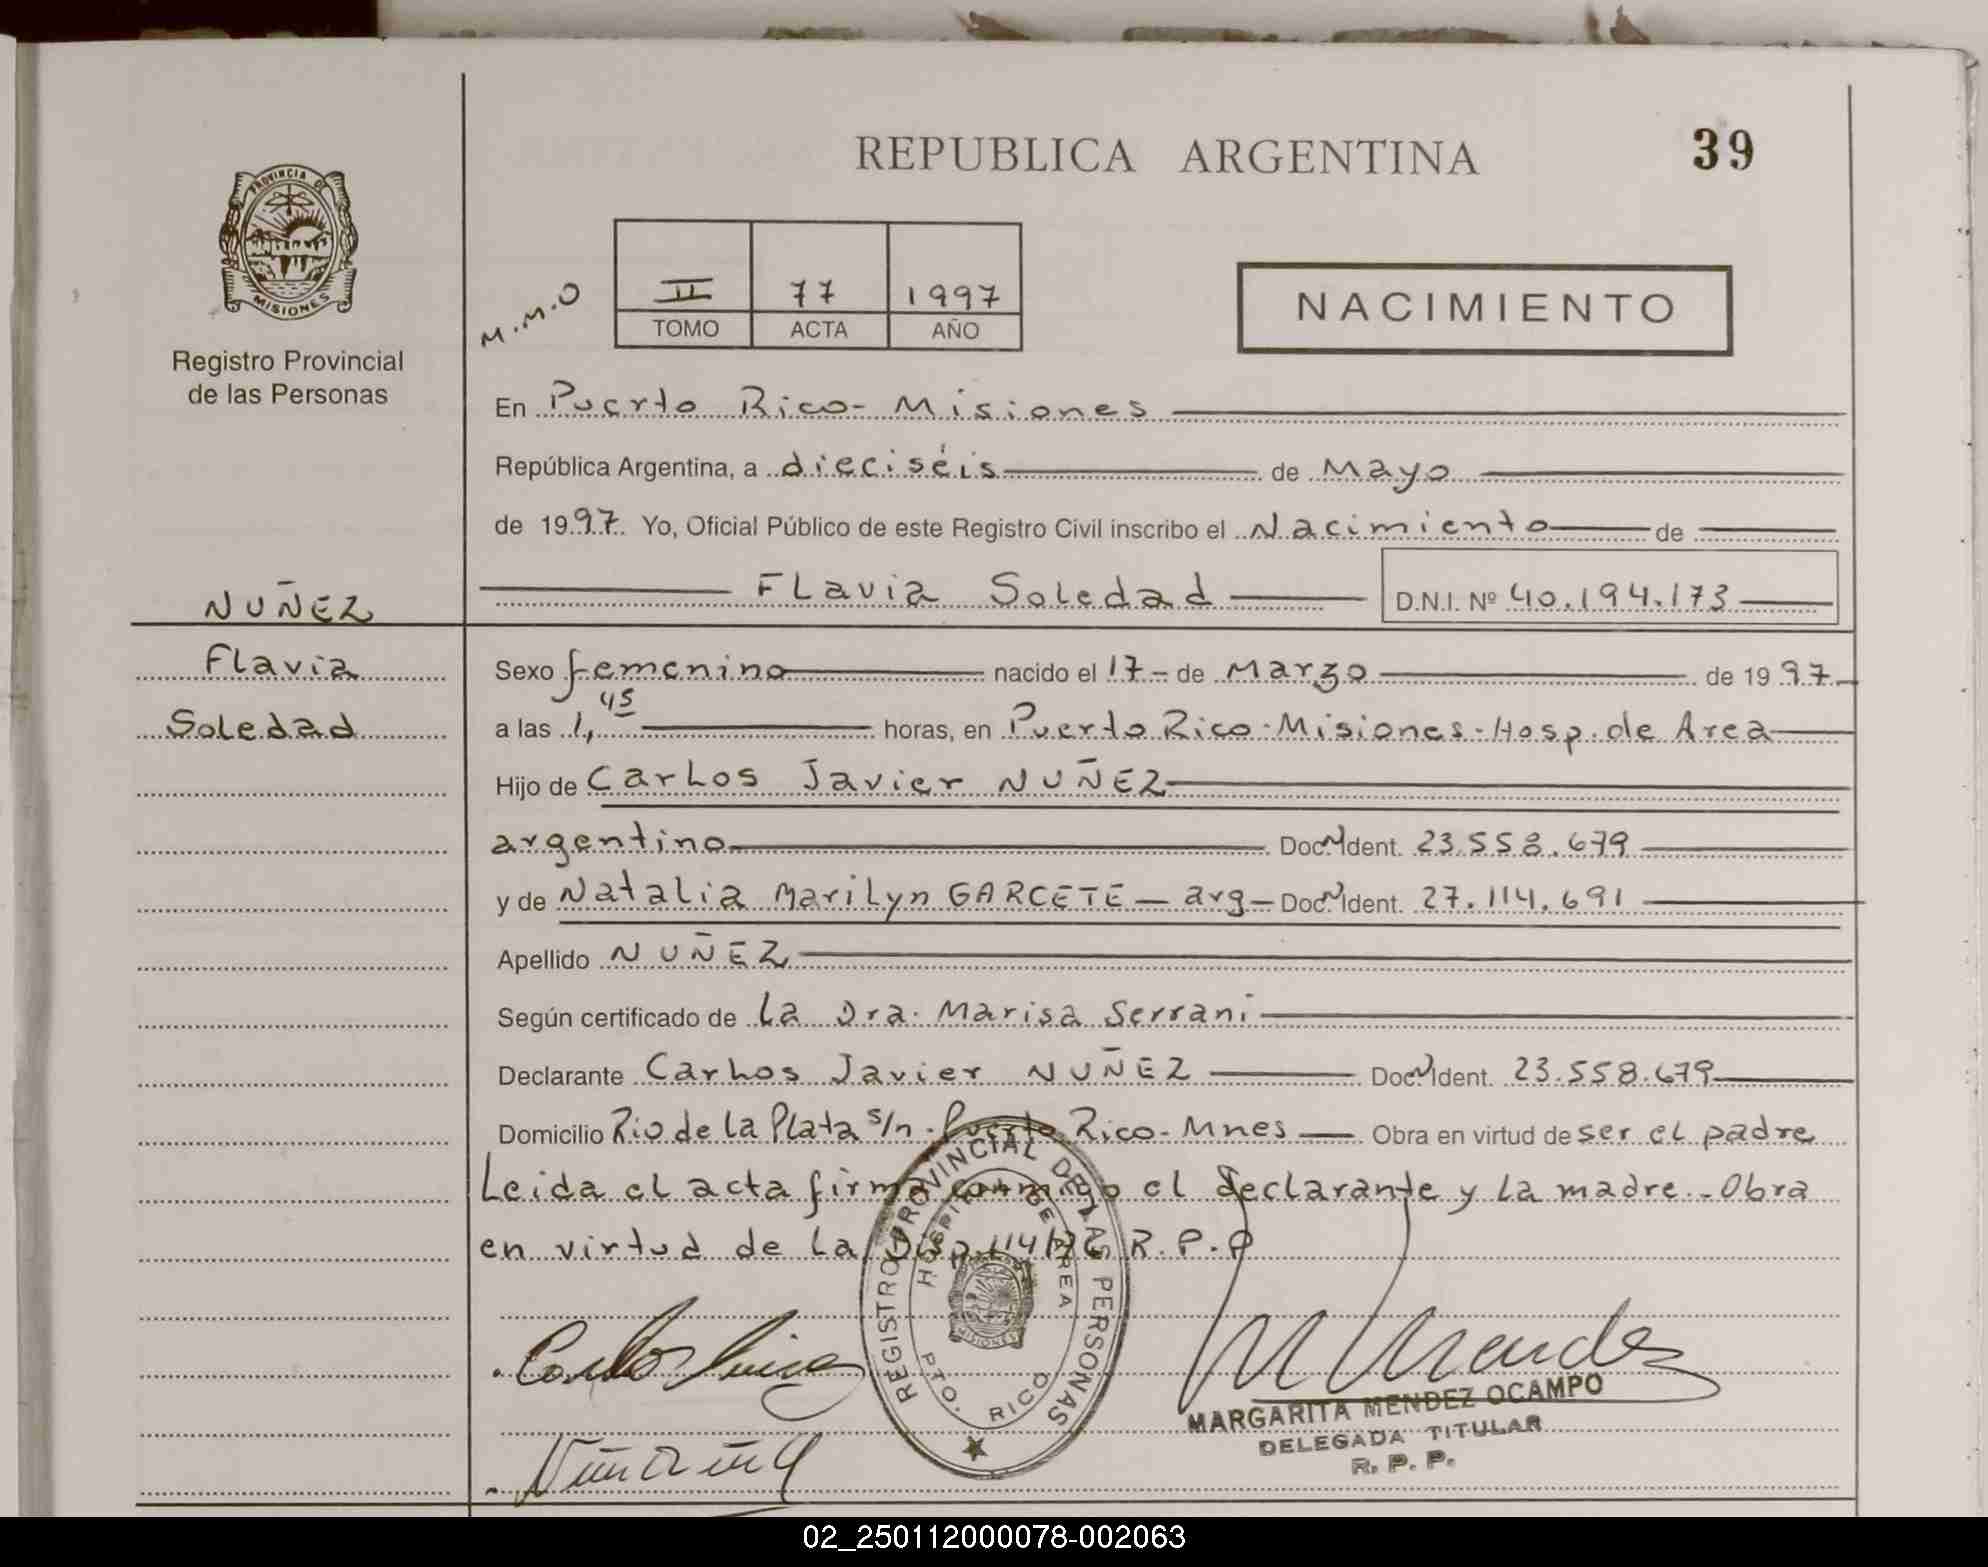 REPUBLICA ARGENTINA
39
PROVINCIA DE
MISIONES
Registro Provincial
de las Personas
M.M.O
II 77 1997
TOMO ACTA AÑO
NACIMIENTO
En Puerto Rico - Misiones
República Argentina, a dieciséis de Mayo
de 1997. Yo, Oficial Público de este Registro Civil inscribo el Nacimiento de
Flavia Soledad D.N.I. Nº 40.194.173
NUÑEZ
Flavia
Soledad
Sexo femenino nacido el 17 - de Marzo de 1997
a las 1,45 horas, en Puerto Rico - Misiones - Hosp. de Area
Hijo de Carlos Javier NUÑEZ
argentino Doc. N Ident. 23.558.679
y de Natalia Marilyn GARCETE - arg - Doc. N Ident. 27.114.691
Apellido NUÑEZ
Según certificado de La Dra. Marisa Serrani
Declarante Carlos Javier NUÑEZ Doc. N Ident. 23.558.679
Domicilio Rio de La Plata s/n - Puerto Rico - Mnes Obra en virtud de ser el padre
Leida el acta firma conmigo el declarante y La madre.- Obra
en virtud de La Disp. 114/96 R.P.P
REGISTRO PROVINCIAL DE LAS PERSONAS
HOSPITAL DE AREA
MISIONES
PTO. RICO
MARGARITA MENDEZ OCAMPO
DELEGADA TITULAR
R. P. P.
02_250112000078-002063